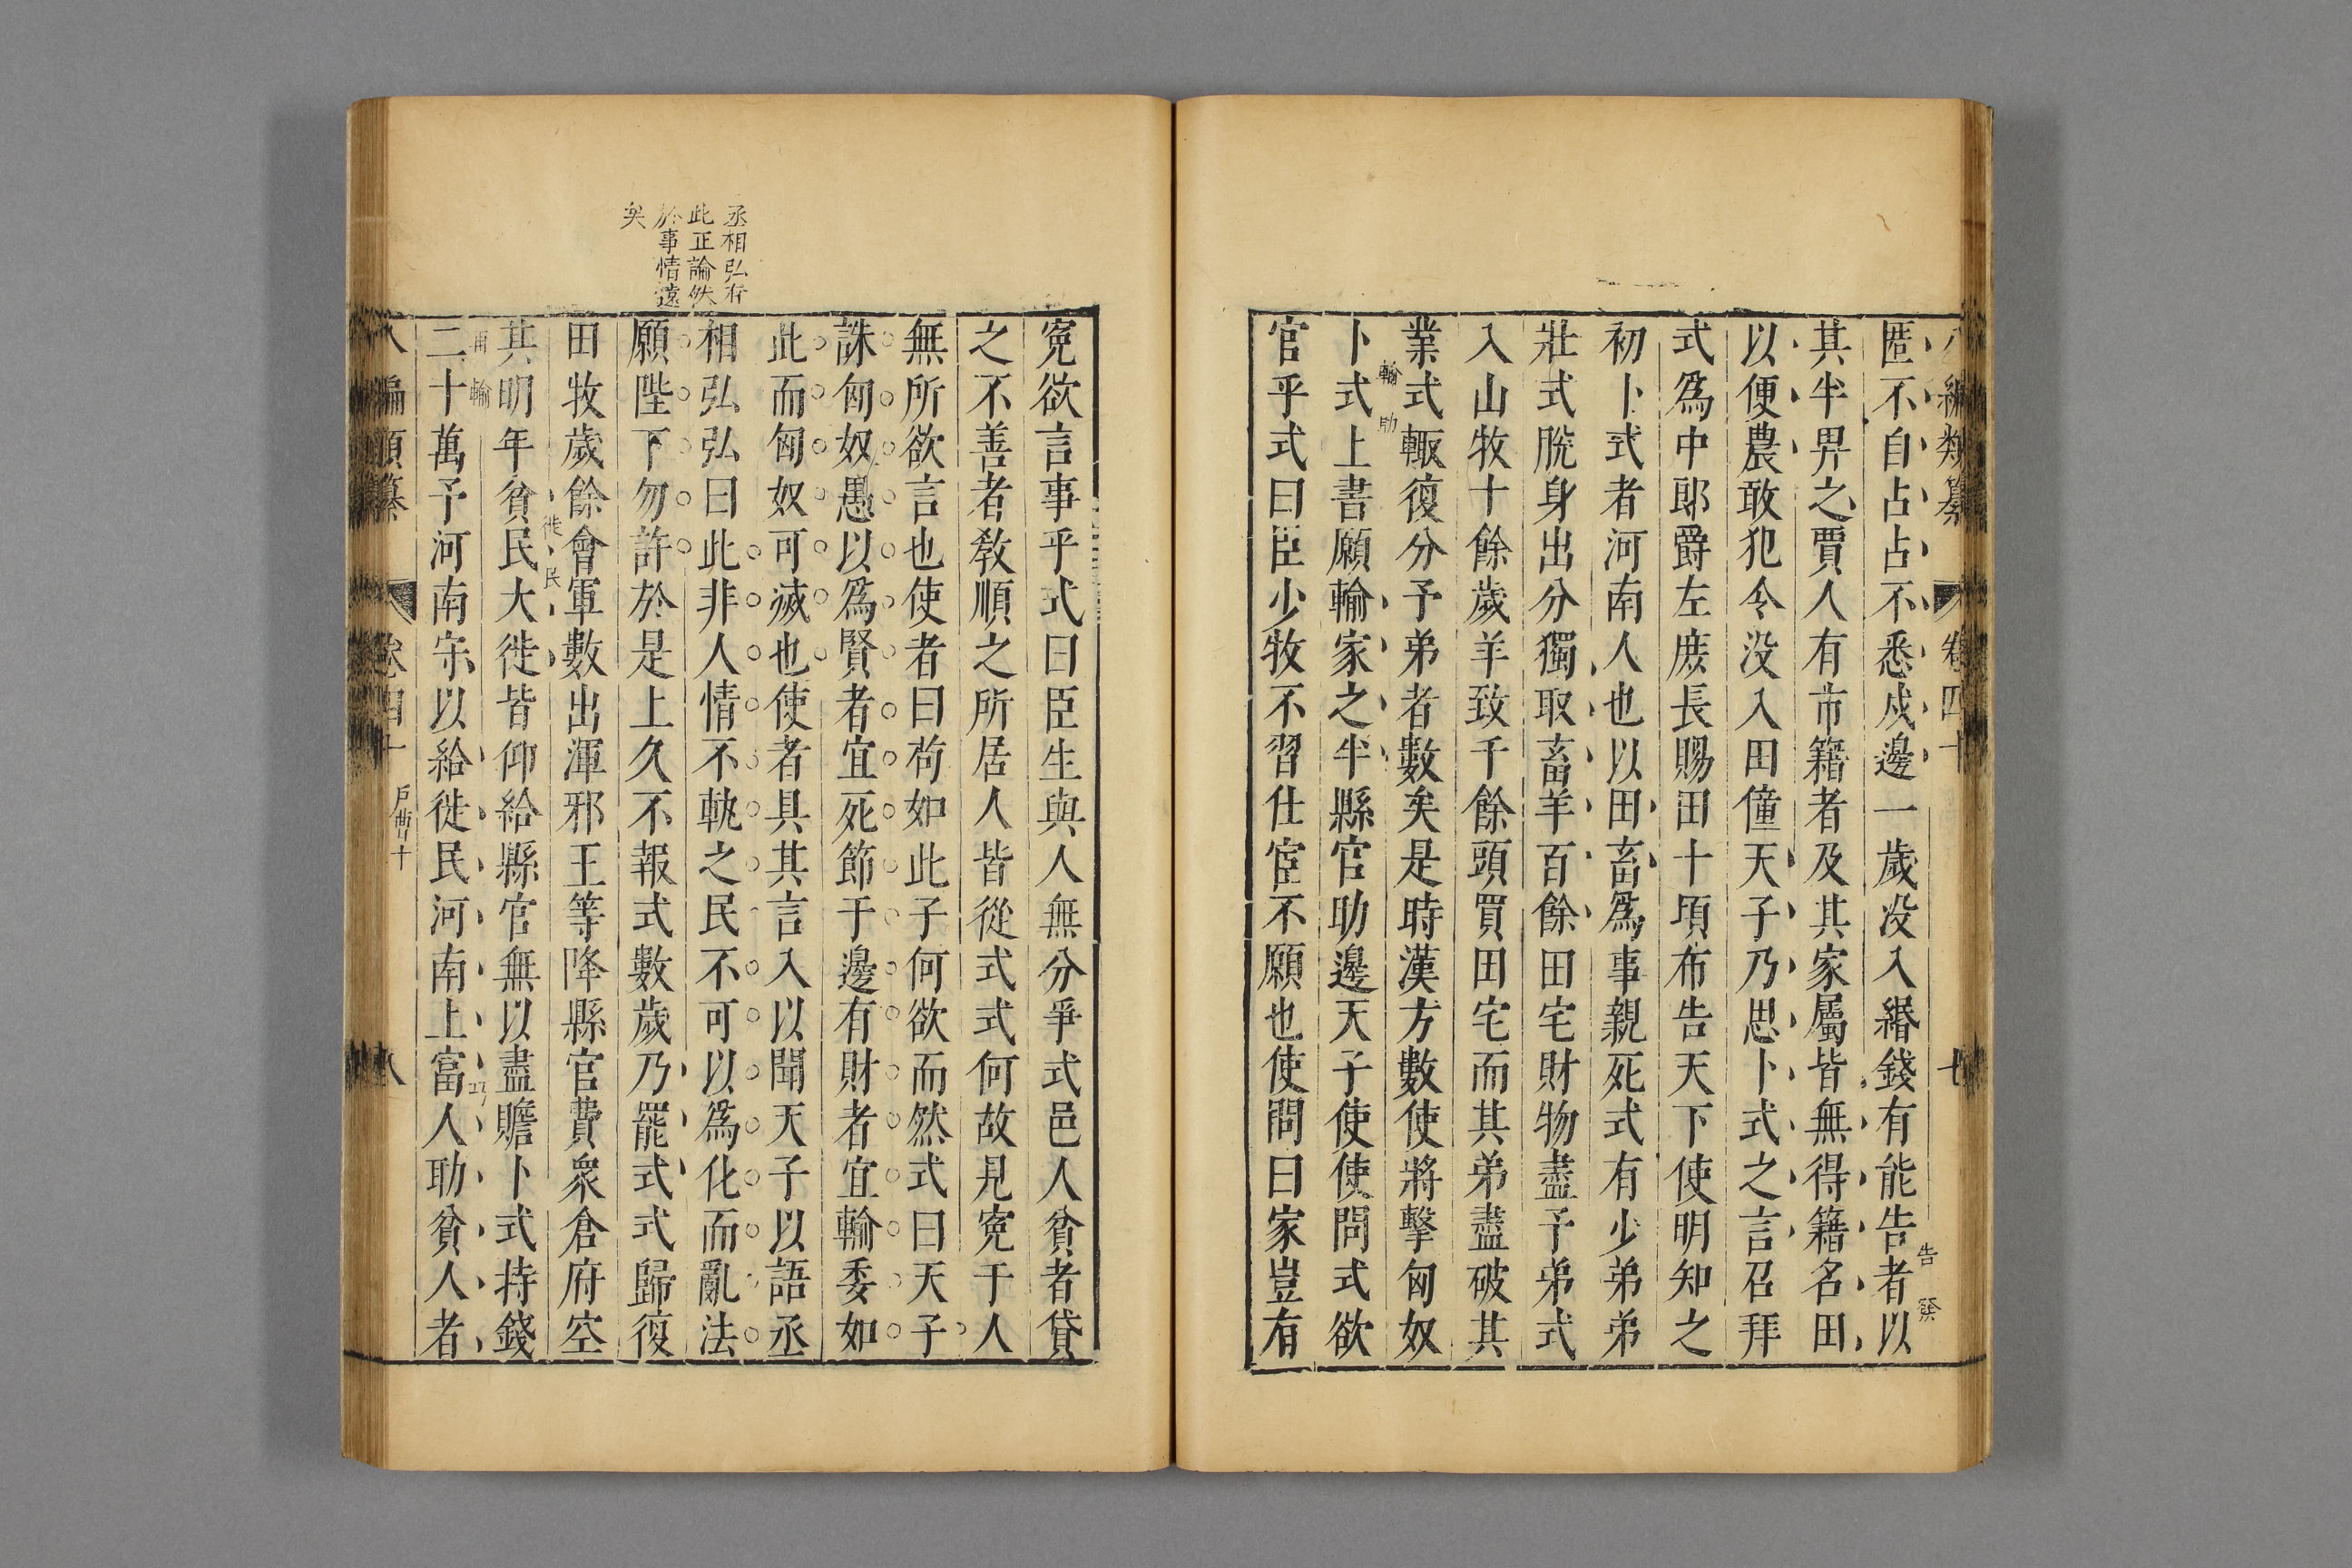 八編類纂 卷四十 七
匿不自占占不悉戍邊一歲没入緡錢有能告者以
告 發
其半畀之賈人有市籍者及其家屬皆無得籍名田
以便農敢犯令没入田僮天子乃思卜式之言召拜
式爲中郎爵左庶長賜田十頃布告天下使明知之
初卜式者河南人也以田畜爲事親死式有少弟弟
壯式脫身出分獨取畜羊百餘田宅財物盡予弟式
入山牧十餘歲羊致千餘頭買田宅而其弟盡破其
業式輙復分予弟者數矣是時漢方數使將擊匈奴
輸 助
卜式上書願輸家之半縣官助邊天子使使問式欲
官乎式曰臣少牧不習仕宦不願也使問曰家豈有
寃欲言事乎式曰臣生與人無分爭式邑人貧者貸
之不善者教順之所居人皆從式式何故見寃于人
無所欲言也使者曰苟如此子何欲而然式曰天子
誅匈奴愚以爲賢者宜死節于邊有財者宜輸委如
此而匈奴可滅也使者具其言入以聞天子以語丞
丞相弘存
此正論然
於事情遠
矣
相弘弘曰此非人情不軌之民不可以爲化而亂法
願陛下勿許於是上久不報式數歲乃罷式式歸復
田牧歲餘會軍數出渾邪王等降縣官費衆倉府空
徙民
其明年貧民大徙皆仰給縣官無以盡贍卜式持錢
二十萬予河南守以給徙民河南上富人助貧人者
八編類纂 卷四十 戶曹十 八